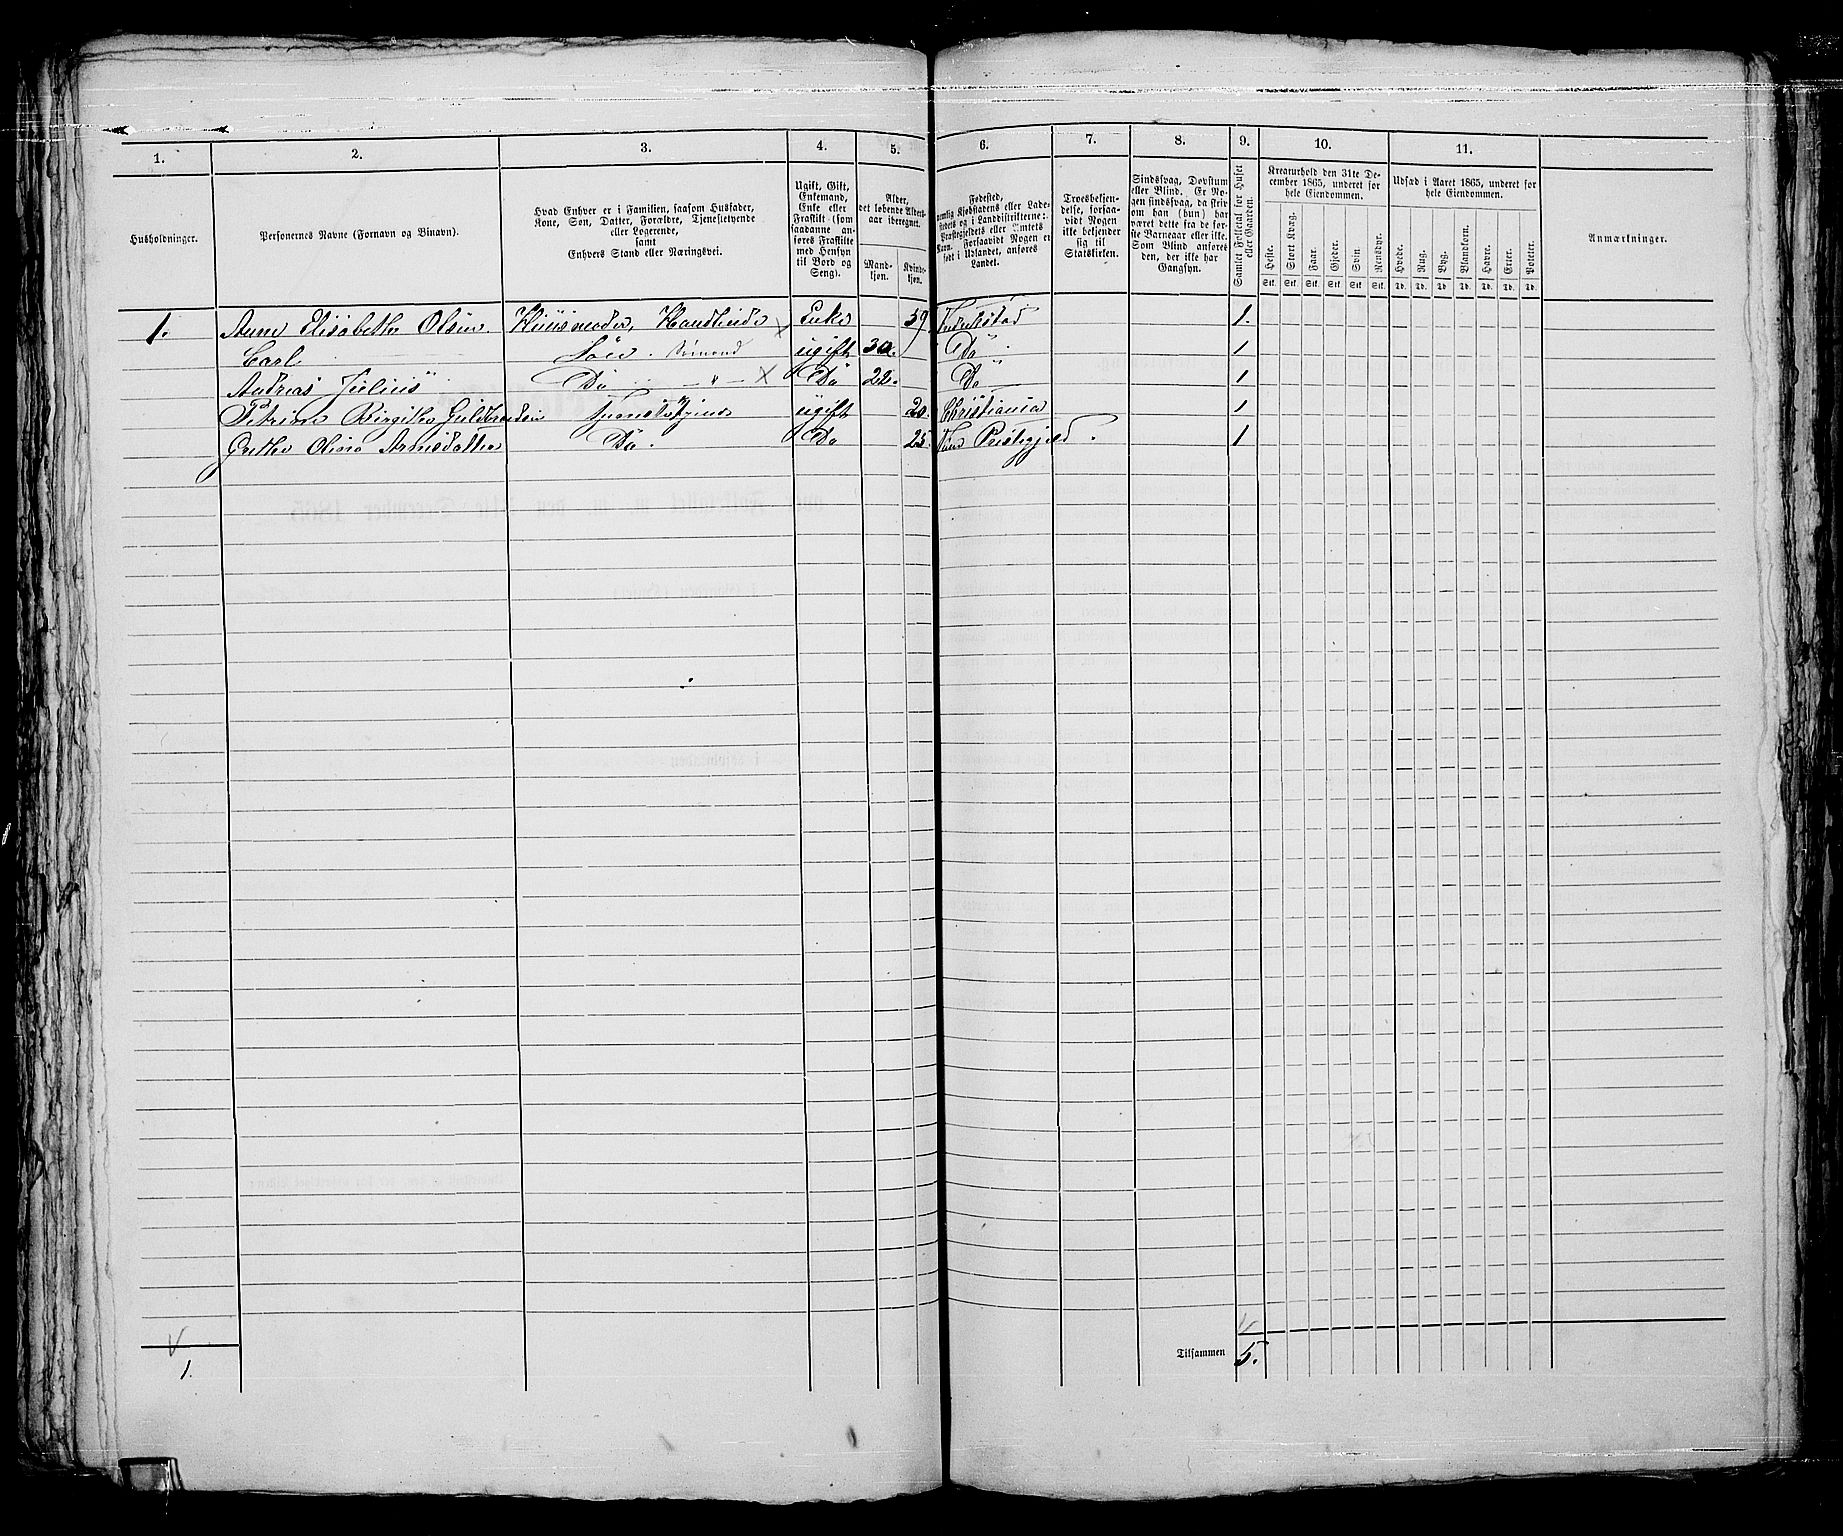 1. 2. 3. 4. 5. 6. 7. 8. 9. 10. 11.
Husholdninger.
Personernes Navne (Fornavn og Binavn).
Hvad Enhver er i Familien, saasom Husfader,
Kone, Søn, Datter, Forældre, Tjenestetyende
eller Logerende,
samt
Enhvers Stand eller Næringsvei.
Ugift, Gift,
Enkemand,
Enke eller
Fraskilt (som
saadanne an-
føres Fraskilte
med Hensyn
til Bord og
Seng).
Alder,
det løbende Alders-
aar iberegnet.
Mand-
kjøn.
Kvinde-
kjøn.
Fødested,
nemlig Kjøbstadens eller Lade-
stedets og i Landdistrikterne:
Præstegjeldets eller Amtets
Navn. Forsaavidt Nogen er
født i Udlandet, anføres
Landet.
Troesbekjen-
delse, forsaa-
vidt Nogen
ikke bekjender
sig til
Statskirken.
Sindssvag, Døvstum
eller Blind. Er No-
gen sindssvag, da skriv
om han (hun) har
været dette fra de før-
ste Barneaar eller ikke.
Som Blind anføres
den, der ikke har
Gangsyn.
Samlet Folketal for Huset
eller Gaarden.
Kreaturhold den 31te De-
cember 1865, underet for
hele Eiendommen.
Heste. Stort Kvæg. Faar. Gjeder. Svin. Rensdyr.
Stk. Stk. Stk. Stk. Stk. Stk.
Udsæd i Aaret 1865, underet for
hele Eiendommen.
Hvede. Rug. Byg. Blandkorn. Havre. Erter. Poteter.
Td. Td. Td. Td. Td. Td. Td.
Anmærkninger.
1. Anne Elisabethe Olsen Huusmoder, Handlende Enke 59. Fredrikstad 1.
Carl Søn. Sömand ugift 30. Do 1
Andreas Julius Do — " — Do 22. Do 1
Petrine Birgithe Tjenestepige ugift 20. Christiania 1
Grethe Oline Arnesdatter Do. Do 25. Tune Præstegjeld. 1
Tilsammen 5.
1.